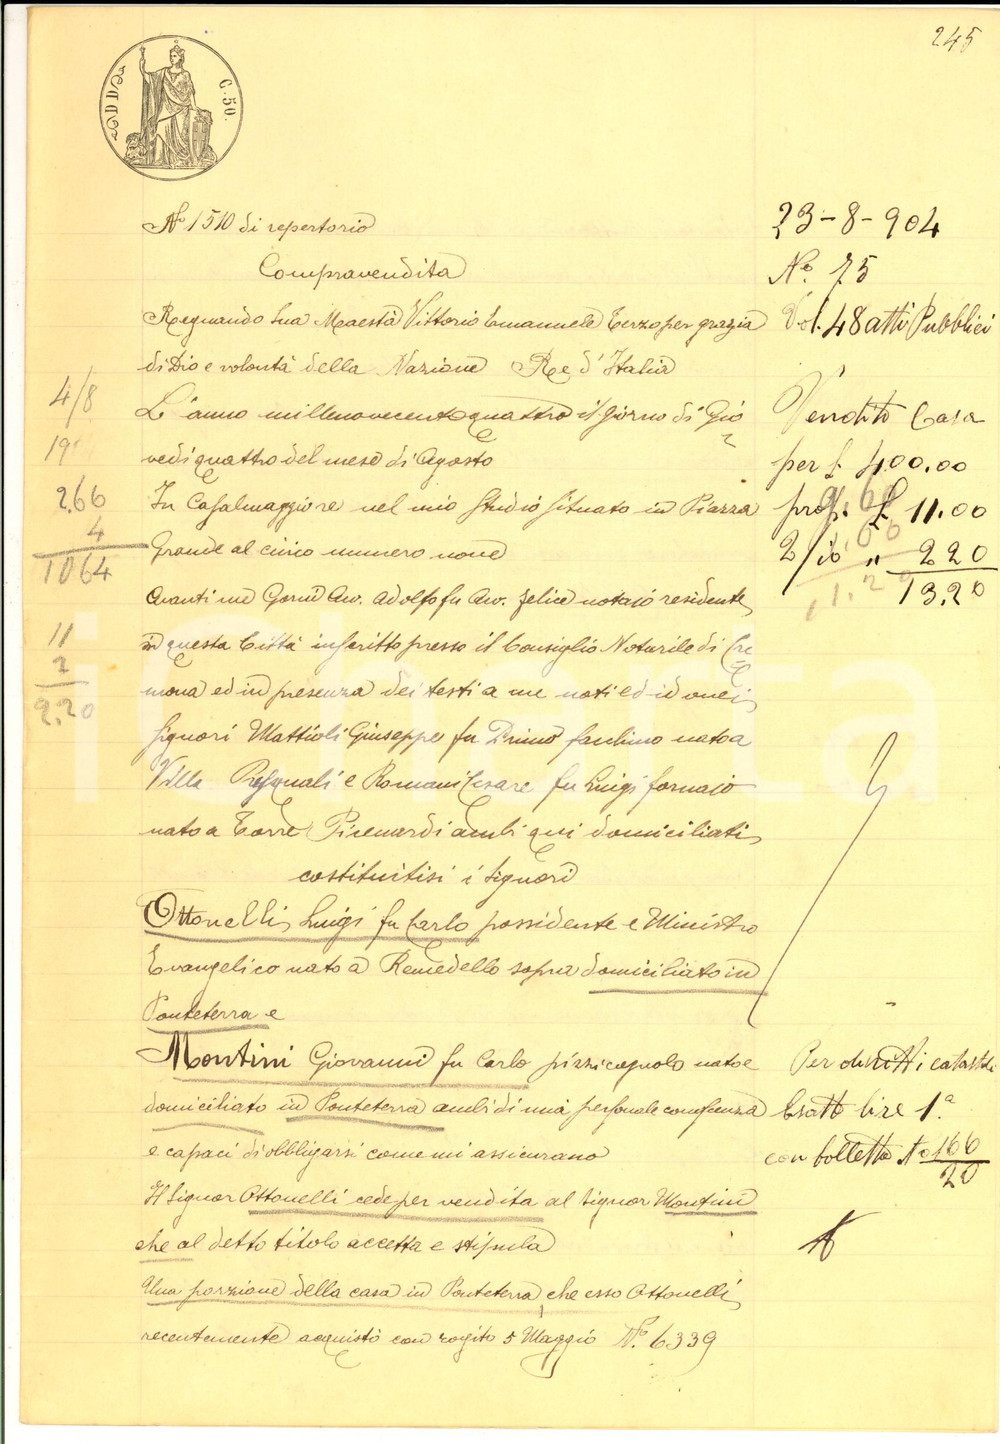 245
C. 50.
No 1510 di repertorio
Compravendita
Regnando Sua Maestà Vittorio Emanuele Terzo per grazia
di Dio e volontà della Nazione Re d'Italia
L'anno millenovecentoquattro il giorno di Gio
vedi quattro del mese di Agosto
In Casalmaggiore nel mio Studio situato in Piazza
Grande al civico numero nove
Avanti me Gorni Avv. Adolfo fu Avv. Felice notaio residente
in questa Città inscritto presso il Consiglio Notarile di Cre
mona ed in presenza dei testi a me noti ed idonei
Signori Mattioli Giuseppe fu Primo facchino nato a
Villa Pasquali e Romani Cesare fu Luigi fornaio
nato a Torre Picenardi ambi qui domiciliati
costituitisi i Signori
Ottonelli Luigi fu Carlo possidente e Ministro
Evangelico nato a Remedello sopra domiciliato in
Ponteterra e
Montini Giovanni fu Carlo pizzicagnolo nato e
domiciliato in Ponteterra ambi di mia personale conoscenza
e capaci di obbligarsi come mi assicurano
Il Signor Ottonelli cede per vendita al Signor Montini
che al detto titolo accetta e stipula
Una porzione della casa in Ponteterra che esso Ottonelli
recentemente acquistò con rogito 5 Maggio No. 6339
23-8-904
No. 75
Vol. 48 atti Pubblici
Vendita Casa
per £ 400.00
prop. £ 11.00
2/10 " 220
13.20
Per diritti catastali
Esatte lire 1.a
con bolletta No 166
20
4/8
19
266
4
1064
11
2
2.20